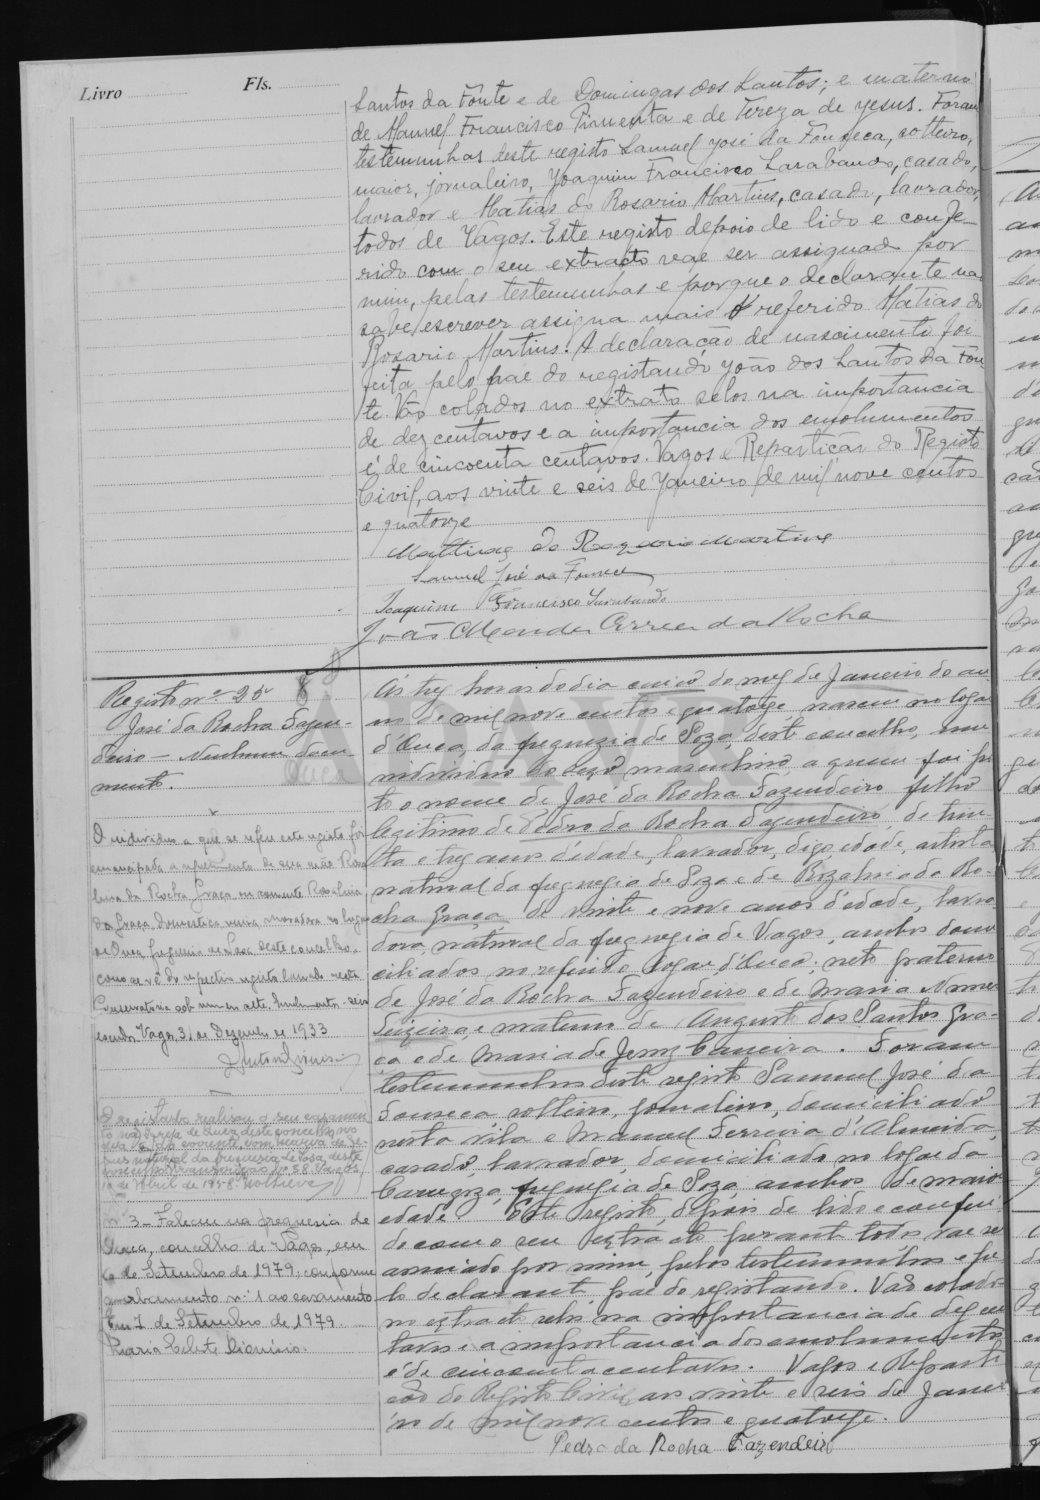 Livro
Fls.
Santos da Fonte e de Domingas dos Santos; e materno
de Manuel Francisco Pimenta e de Tereza de Jesus. Foram
testemunhas deste registo Samuel José da Fonseca, solteiro,
maior, jornaleiro, Joaquim Francisco Sarabando, casado,
lavrador e Matias do Rosario Martins, casado, lavrador,
todos de Vagos. Este registo depois de lido e confe-
rido com o seu extracto vae ser assignado por
mim, pelas testemunhas e porque o declarante não
sabe escrever assigna mais o referido Matias do
Rosario Martins. A declaração de nascimento foi
feita pelo pae do registando João dos Santos da Fon-
te. Vão colados no extrato selos na importancia
de dez centavos e a importancia dos emolumentos
é de cincoenta centavos. Vagos e Repartição do Registo
Civil, aos vinte e seis de Janeiro de mil nove centos
e quatorze
Mathias do Rozario Martins
Samuel José da Fonseca
Joaquim Francisco Sarabando
João Mendes Correia da Rocha
Registo nº 25
José da Rocha Fazen-
deiro — Nenhum docu-
mento.
Ouca
O individuo a que se refere este registo foi
emancipado a requerimento de sua mãe Rosa
lina da Rocha Graça ou somente Rosalina
da Graça, domestica, viuva, moradora no lugar
de Ouca, freguesia de Soza deste concelho,
como se vê do respectivo registo lavrado nesta
Conservatoria sob numero sete
Vagos, 31 de Dezembro de 1933
O registado realizou o seu casamen
to na Igreja de Ouca deste concelho no
dia do corrente, com
natural da freguesia de Sosa, deste
concelho. nº 58. Vagos,
de Abril de 1958.
nº 3 — Faleceu na freguesia de
Ouca, concelho de Vagos, em
6 de Setembro de 1979, conforme
averbamento nº 1 ao casamento.
Em 7 de Setembro de 1979.
Maria Celeste Dionisio.
Ás trez horas do dia cinco do mez de Janeiro do an
no de mil nove centos e quatorze nasceu no logar
d'Ouca, da freguezia de Soza, deste concelho, um
individuo do sexo masculino, a quem foi pos
to o nome de José da Rocha Fazendeiro, filho
legitimo de Pedro da Rocha Fazendeiro, de trin
ta e trez anos d'edade, lavrador, digo, edade, artista
natural da freguezia de Soza e de Rozalina da Ro-
cha Graça de vinte e nove anos d'edade, lavra
dora, natural da freguezia de Vagos, ambos domi
ciliados no referido logar d'Ouca; neto paterno
de José da Rocha Fazendeiro e de Maria Nunes
Teixeira, e materno de Augusto dos Santos Gra-
ça e de Maria de Jesus Caneira. Foram
testemunhas deste registo Samuel José da
Fonseca solteiro, jornaleiro, domiciliado
nesta vila e Manuel Ferreira d'Almeida,
casado, lavrador, domiciliado no logar da
Carregoza, freguezia de Soza, ambos de maior
edade. Este registo, depois de lido e conferi-
do com o seu extracto perante todos vae ser
assinado por mim, pelas testemunhas e pe
lo declarante pae do registando. Vão colados
no extracto selos na importancia de dez cen
tavos e a importancia dos emolumentos
é de cincoenta centavos. Vagos e Reparti
ção do Registo Civil, aos vinte e seis de Janei
ro de mil nove centos e quatorze.
Pedro da Rocha Fazendeiro